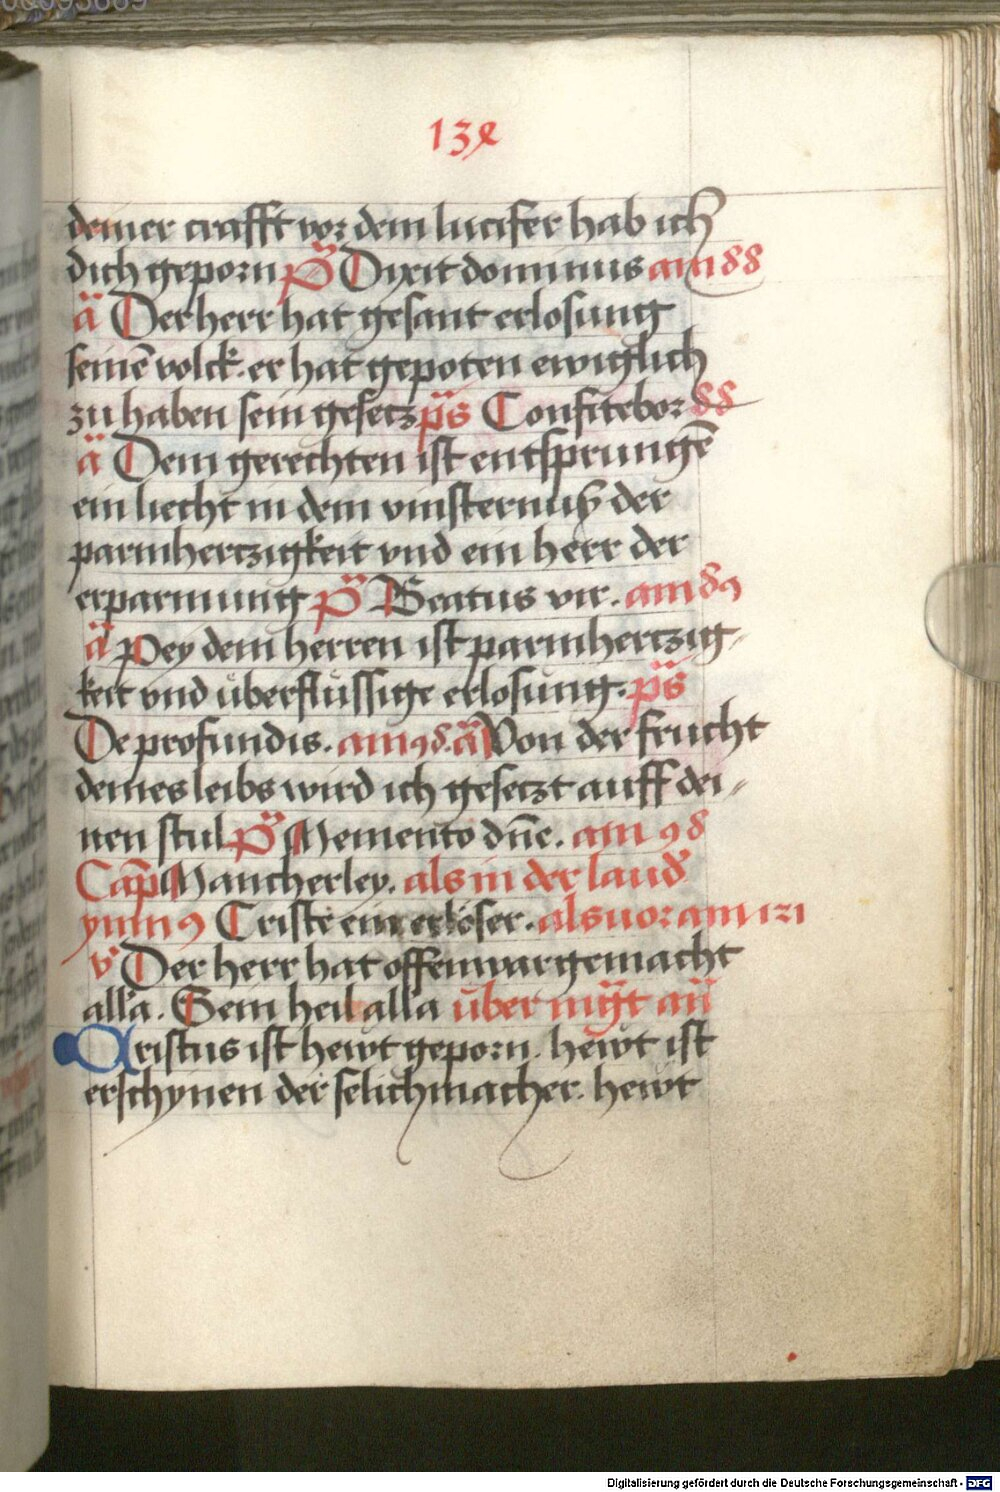 132
deiner crafft vor dem lucifer hab ich
dich geporn p̄s Dixit dominus am 88
ā Der herr hat gesant erlosung
seinē volck. er hat gepoten ewiglich
zu haben sein gesetz p̄s Confitebor 88
ā Dem gerechten ist entsprungē
ein liecht in dem vinsternuß der
parmhertzigkeit vnd ein herr der
erparmung p̄s Beatus vir. am 89
ā Pey dem herren ist parmhertzig-
keit vnd überflüssige erlosung. p̄s
De profundis. am 98. ā Von der frucht
deines leibs wird ich gesetzt auff dei-
nen stul p̄s Memento dn̄e. am 98
Cap̄ Mancherley. als in der laud
ymn9 Criste ein erlöser. als uor am 121
v Der herr hat offenwar gemacht
alla. Sein heil alla über mḡt an̄
Cristus ist hewt geporn. hewt ist
erschynen der selichmacher. hewt
Digitalisierung gefördert durch die Deutsche Forschungsgemeinschaft - DFG